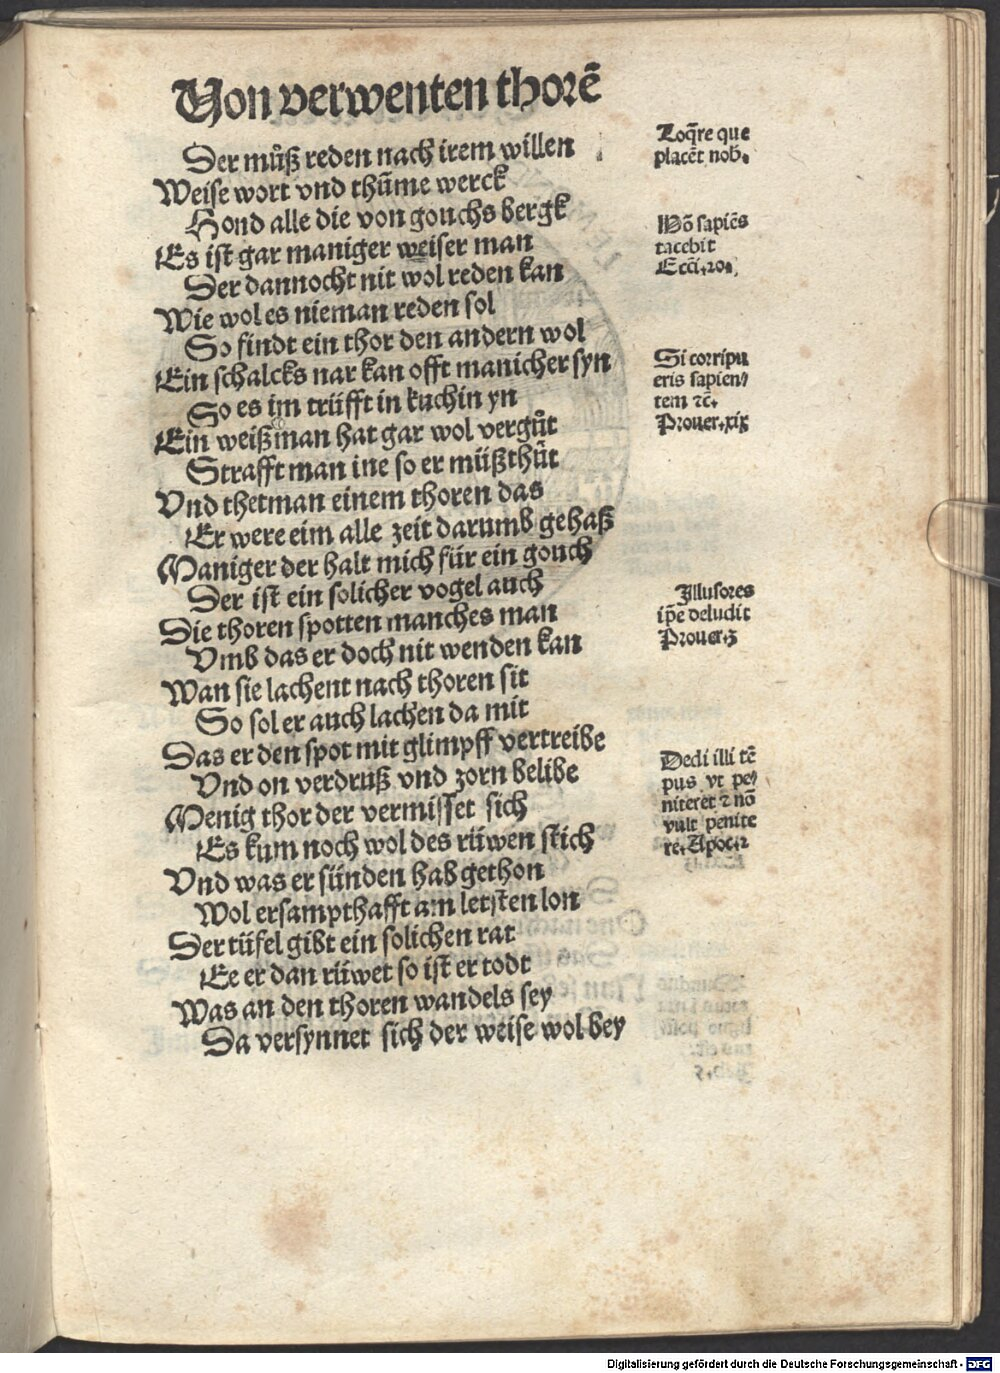 Von verwenten thorē
Der můß reden nach irem willen
Weise wort vnd thūme werck
Hond alle die von gouchs bergk
Es ist gar maniger weiser man
Der dannocht nit wol reden kan
Wie wol es nieman reden sol
So findt ein thor den andern wol
Ein schalcks nar kan offt manicher syn
So es im trüfft in kuchin yn
Ein weißman hat gar wol vergůt
Strafft man ine so er müßthůt
Vnd thetman einem thoren das
Er were eim alle zeit darumb gehaß
Maniger der halt mich für ein gouch
Der ist ein solicher vogel auch
Die thoren spotten manches man
Vmb das er doch nit wenden kan
Wan sie lachent nach thoren sit
So sol er auch lachen da mit
Das er den spot mit glimpff vertreibe
Vnd on verdruß vnd zorn belibe
Menig thor der vermisset sich
Es kum noch wol des rüwen stich
Vnd was er sünden hab gethon
Wol ersampthafft am letsten lon
Der tüfel gibt ein solichen rat
Ee er dan rüwet so ist er todt
Was an den thoren wandels sey
Da versynnet sich der weise wol bey
Loqͥre que
placēt nob.
Hō sapiēs
tacebit
Ecci.20.
Si corripu
eris sapien/
tem ⁊c̄.
Prouer.xix
Illusores
ip̄e deludit
Prouer.3
Dedi illi tē
pus vt pe/
niteret ⁊ nō
vult penite
re. Apoc.2
Digitalisierung gefördert durch die Deutsche Forschungsgemeinschaft - DFG